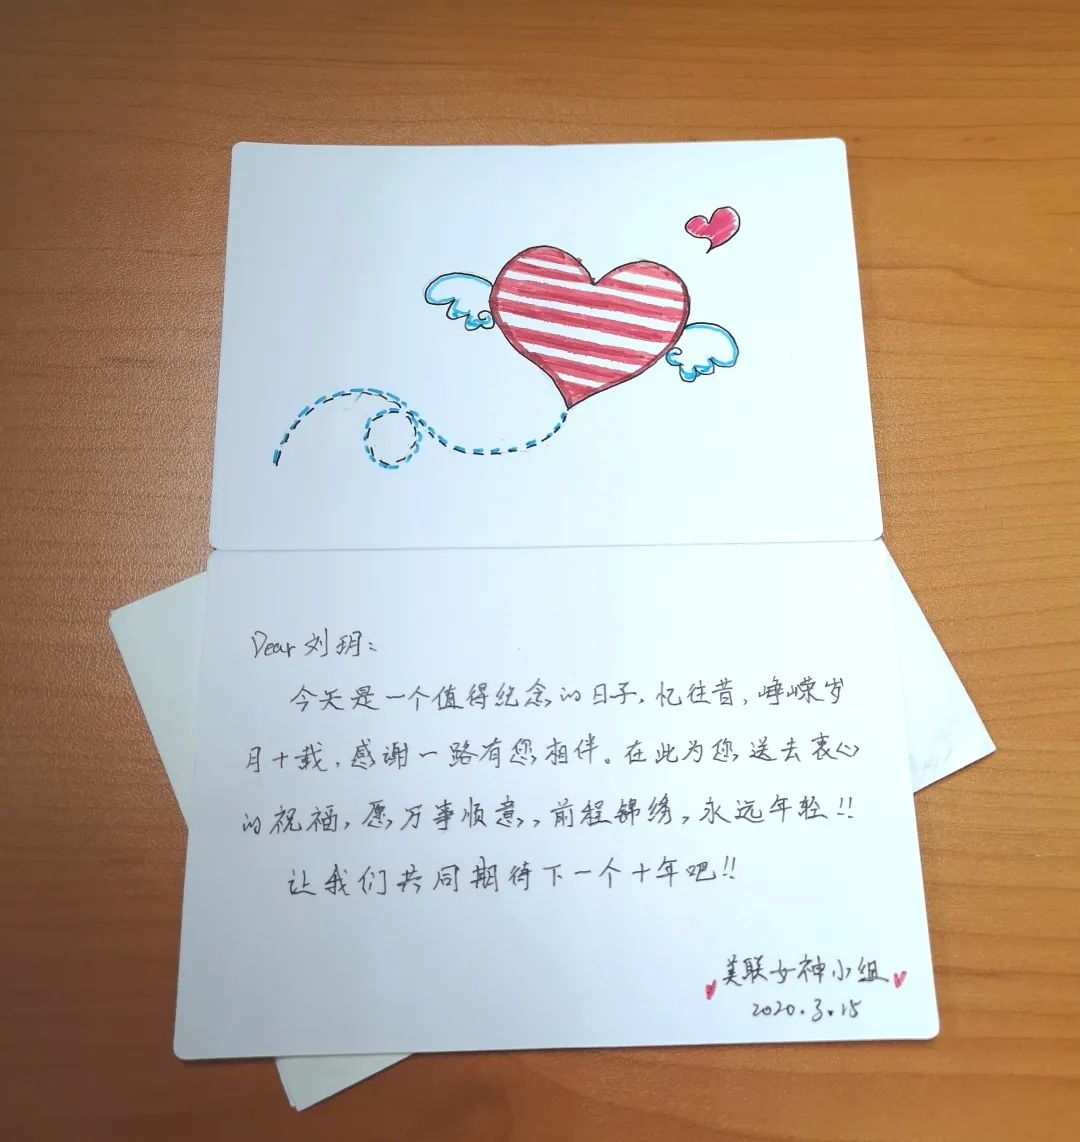 Dear 刘玥：
今天是一个值得纪念的日子，忆往昔，峥嵘岁
月十载，感谢一路有您相伴。在此为您送去衷心
的祝福，愿万事顺意，前程锦绣，永远年轻!!
让我们共同期待下一个十年吧!!
美联女神小组
2020.3.15